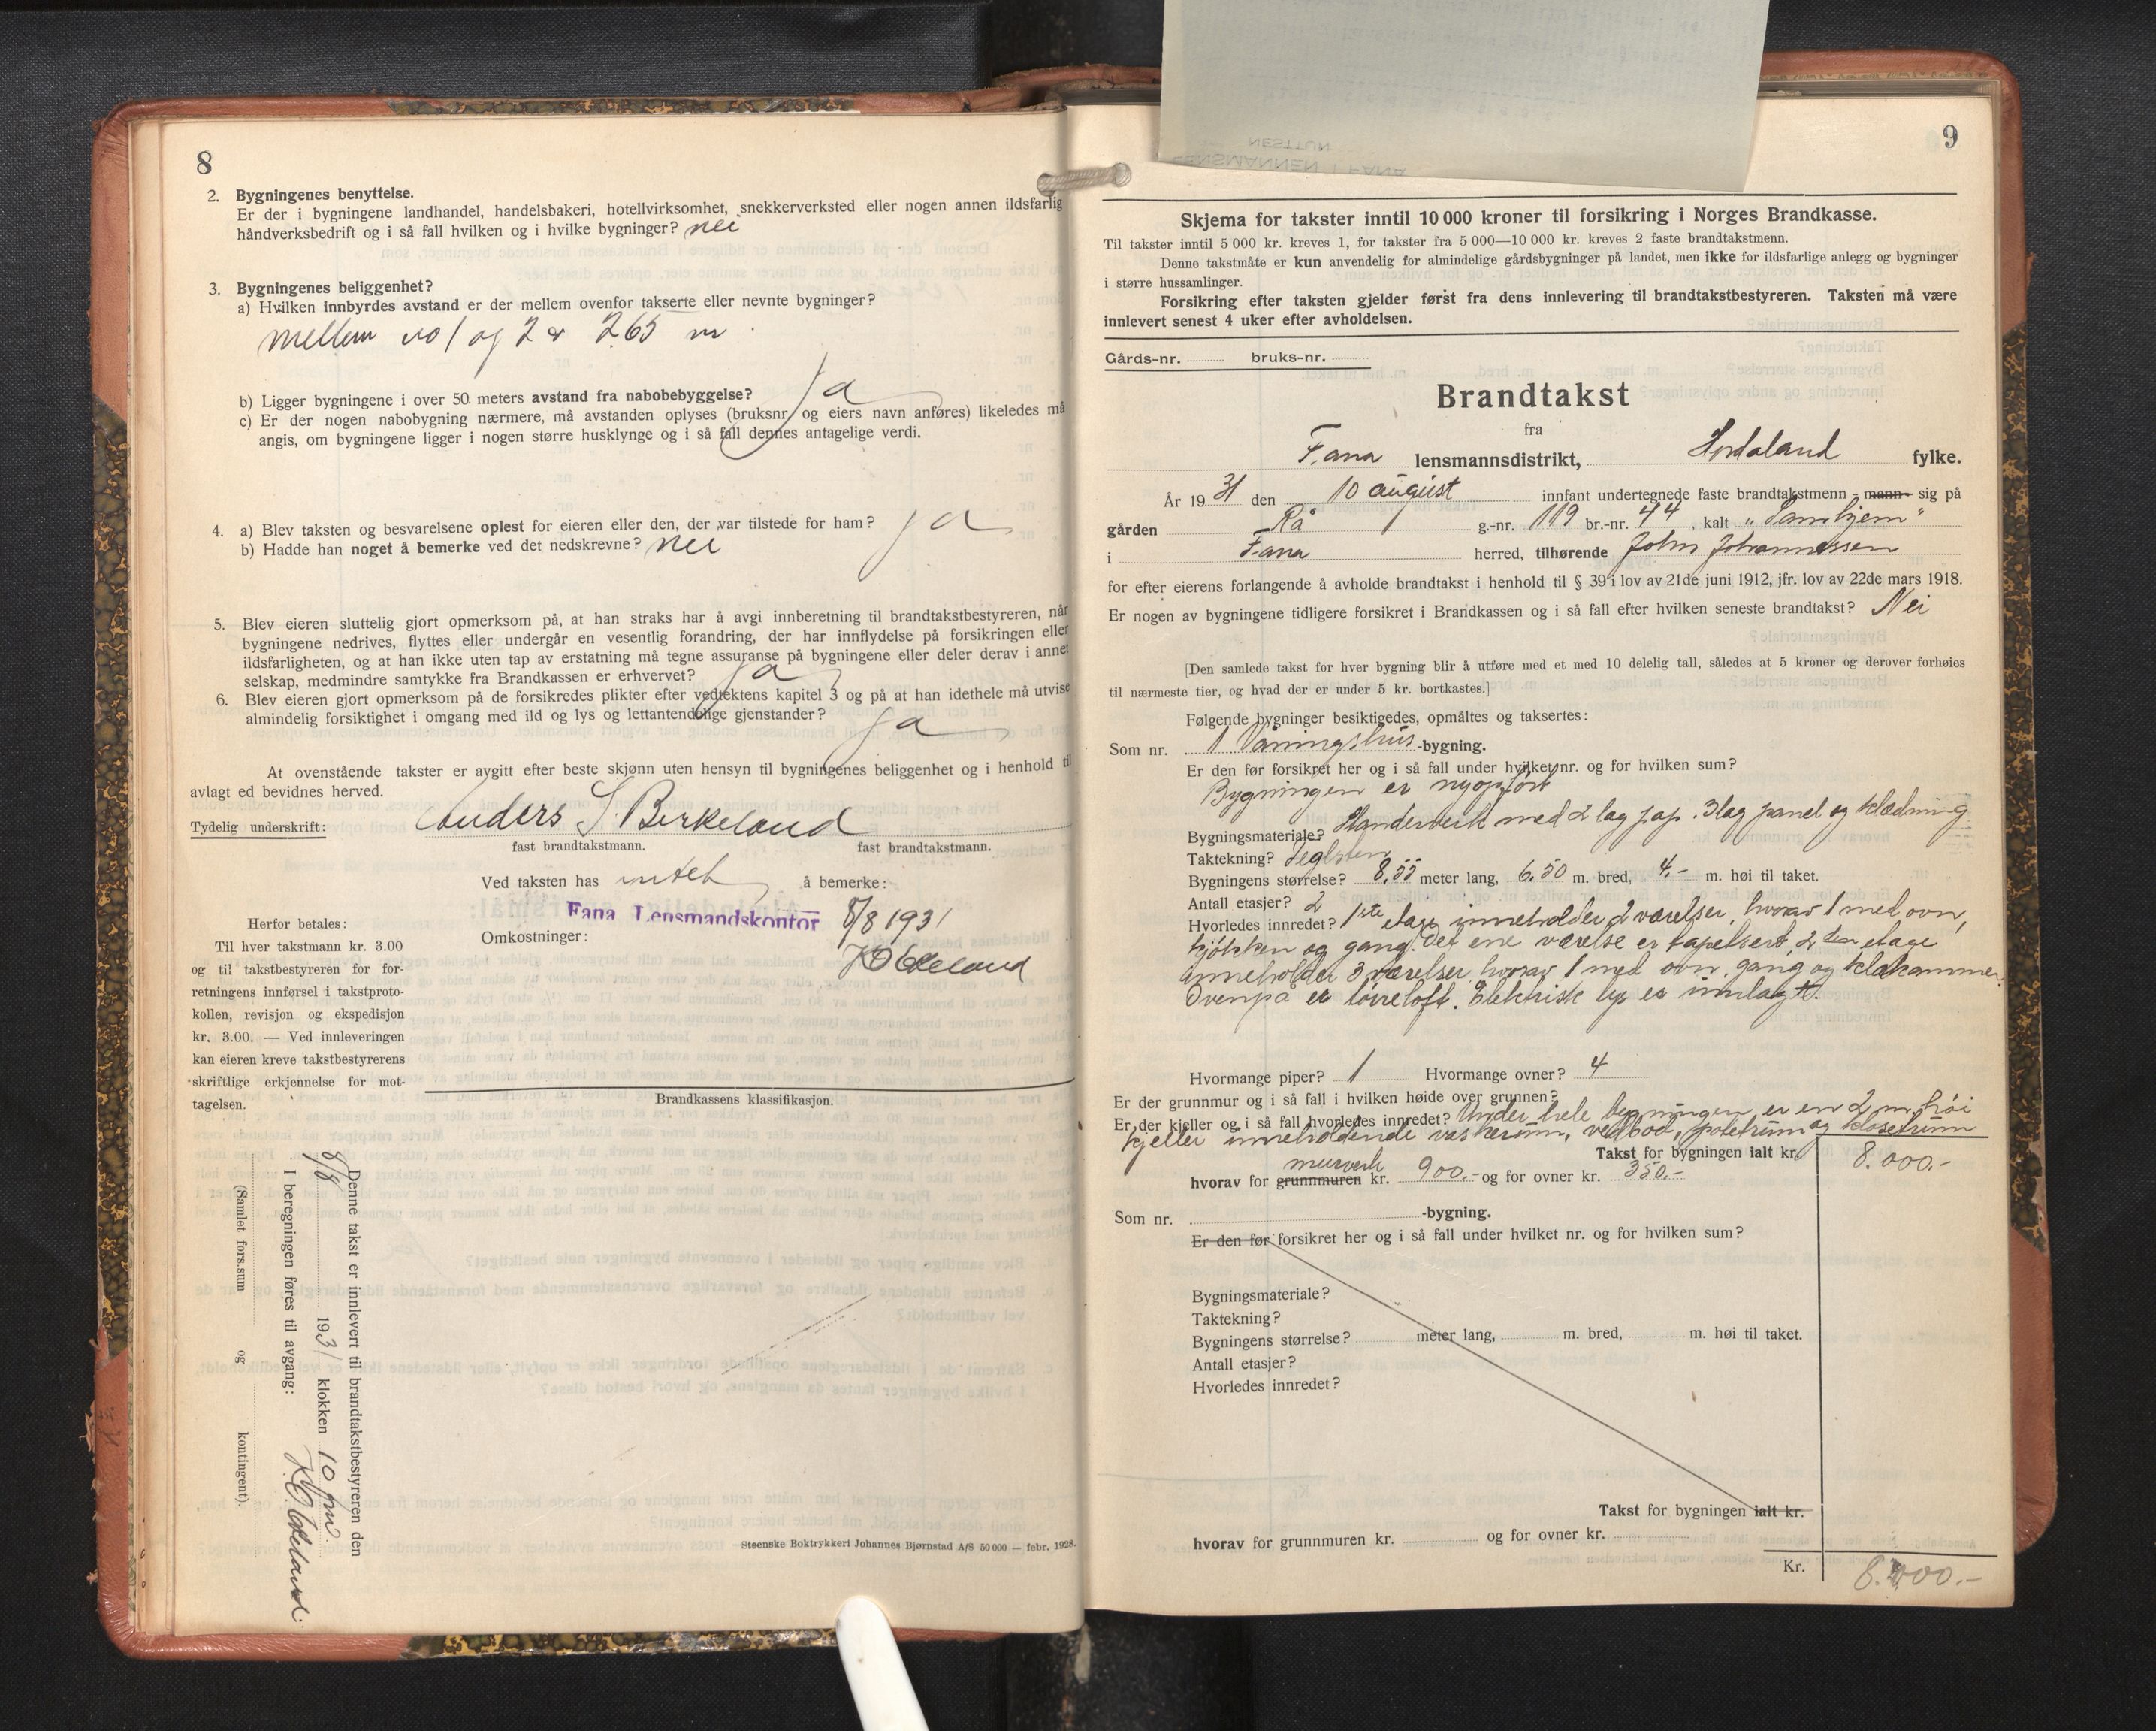 8
2. Bygningenes benyttelse.
Er der i bygningene landhandel, handelsbakeri, hotellvirksomhet, snekkerverksted eller nogen annen ildsfarlig
håndverksbedrift og i så fall hvilken og i hvilke bygninger? nei
3. Bygningenes beliggenhet?
a) Hvilken innbyrdes avstand er der mellem ovenfor takserte eller nevnte bygninger?
mellem no 1 og 2 er 265 m.
b) Ligger bygningene i over 50 meters avstand fra nabobebyggelse? ja
c) Er der nogen nabobygning nærmere, må avstanden oplyses (bruksnr. og eiers navn anføres) likeledes må
angis, om bygningene ligger i nogen større husklynge og i så fall dennes antagelige verdi.
4. a) Blev taksten og besvarelsene oplest for eieren eller den, der var tilstede for ham? ja
b) Hadde han noget å bemerke ved det nedskrevne? nei
5. Blev eieren sluttelig gjort opmerksom på, at han straks har å avgi innberetning til brandtakstbestyreren, når
bygningene nedrives, flyttes eller undergår en vesentlig forandring, der har innflydelse på forsikringen eller
ildsfarligheten, og at han ikke uten tap av erstatning må tegne assuranse på bygningene eller deler derav i annet
selskap, medmindre samtykke fra Brandkassen er erhvervet? ja
6. Blev eieren gjort opmerksom på de forsikredes plikter efter vedtektens kapitel 3 og på at han idethele må utvise
almindelig forsiktighet i omgang med ild og lys og lettantendelige gjenstander? ja
At ovenstående takster er avgitt efter beste skjønn uten hensyn til bygningenes beliggenhet og i henhold til
avlagt ed bevidnes herved.
Tydelig underskrift: Anders S. Birkeland
fast brandtakstmann. fast brandtakstmann.
Ved taksten has intet å bemerke:
Fana Lensmandskontor 8/8 1931
Omkostninger:
Herfor betales:
Til hver takstmann kr. 3.00
og til takstbestyreren for for-
retningens innførsel i takstproto-
kollen, revisjon og ekspedisjon
kr. 3.00. — Ved innleveringen
kan eieren kreve takstbestyrerens
skriftlige erkjennelse for mot-
tagelsen.
Brandkassens klassifikasjon.
Denne takst er innlevert til brandtakstbestyreren den
8/8 1931 klokken 10 fm.
I beregningen føres til avgang:
(Samlet fors.sum og kontingent).
Steenske Boktrykkeri Johannes Bjørnstad A/S 50 000 — febr. 1928.
LENSMANNEN I FANA
NESTTUN
9
Skjema for takster inntil 10 000 kroner til forsikring i Norges Brandkasse.
Til takster inntil 5 000 kr. kreves 1, for takster fra 5 000—10 000 kr. kreves 2 faste brandtakstmenn.
Denne takstmåte er kun anvendelig for almindelige gårdsbygninger på landet, men ikke for ildsfarlige anlegg og bygninger
i større hussamlinger.
Forsikring efter taksten gjelder først fra dens innlevering til brandtakstbestyreren. Taksten må være
innlevert senest 4 uker efter avholdelsen.
Gårds-nr. bruks-nr.
Brandtakst
fra
Fana lensmannsdistrikt, Hordaland fylke.
År 1931 den 10 august innfant undertegnede faste brandtakstmenn - mann - sig på
gården Rå g.-nr. 119 br.-nr. 44, kalt "Samhjem"
i Fana herred, tilhørende John Johannessen
for efter eierens forlangende å avholde brandtakst i henhold til § 39 i lov av 21de juni 1912, jfr. lov av 22de mars 1918.
Er nogen av bygningene tidligere forsikret i Brandkassen og i så fall efter hvilken seneste brandtakst? Nei
[Den samlede takst for hver bygning blir å utføre med et med 10 delelig tall, således at 5 kroner og derover forhøies
til nærmeste tier, og hvad der er under 5 kr. bortkastes.]
Følgende bygninger besiktigedes, opmåltes og taksertes:
Som nr. 1 Våningshus-bygning.
Er den før forsikret her og i så fall under hvilket nr. og for hvilken sum?
Bygningen er nyopført
Bygningsmateriale? Standerverk med 2 lag pap. 3 lag panel og klædning
Taktekning? Teglsten
Bygningens størrelse? 8,55 meter lang, 6,50 m. bred, 4,- m. høi til taket.
Antall etasjer? 2
Hvorledes innredet? 1ste etage inneholder 2 værelser, hvorav 1 med ovn,
kjøkken og gang. Det ene værelse er tapetsert. 2den etage
inneholder 3 værelser, hvorav 1 med ovn, gang og klækammer.
Ovenpå er tørreloft. Elektrisk lys er innlagt.
Hvormange piper? 1 Hvormange ovner? 4
Er der grunnmur og i så fall i hvilken høide over grunnen?
Er der kjeller og i så fall hvorledes innredet? Under hele bygningen er en 2 m. høi
kjeller inneholdende vaskerum, vedbod, potetrum og klosetrum
Takst for bygningen ialt kr. 8.000.-
murverk
hvorav for grunnmuren kr. 900.- og for ovner kr. 350.-
Som nr. -bygning.
Er den før forsikret her og i så fall under hvilket nr. og for hvilken sum?
Bygningsmateriale?
Taktekning?
Bygningens størrelse? meter lang, m. bred, m. høi til taket.
Antall etasjer?
Hvorledes innredet?
Takst for bygningen ialt kr.
hvorav for grunnmuren kr. og for ovner kr.
Kr. 8.000.-